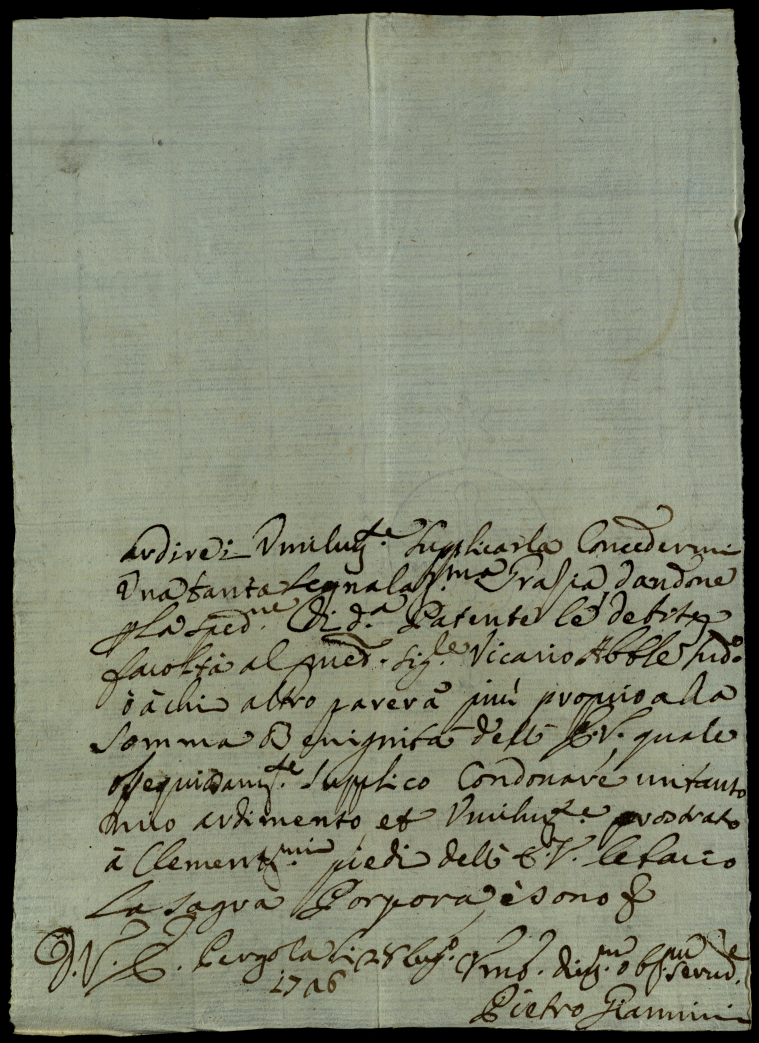 ardire: Umilm.te Supplicarla Concedermi
Una tanta segnalat.ma Grasia, dandone
p la sped.ne di d.a Patente le debite
facoltà al med. Sig.e Vicario Abble sud.o
ò à chi altro parerà più proprio alla
Somma Benignità dell' E.V. quale
ossequiosam.te Supplico Condonare un tanto
mio ardimento, et Umilm.te prostrato
à Clement.mi piedi dell' E.V. le bacio
la sagra Porpora, è sono &
D.V.E. Pergola li 28 lug.o Umo. div.mo obb.mo Serud.e
Pietro Giannini